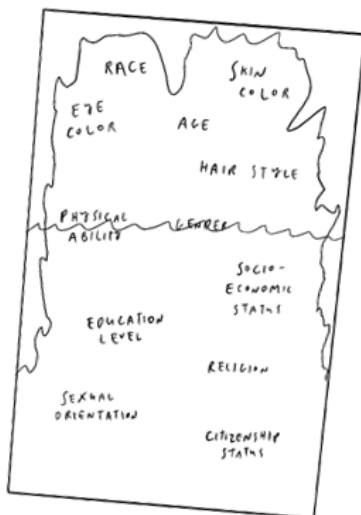 RACE
SKIN
COLOR
EYE
COLOR
AGE
HAIR STYLE
PHYSICAL
ABILITY
GENDER
SOCIO-
ECONOMIC
STATUS
EDUCATION
LEVEL
RELIGION
SEXUAL
ORIENTATION
CITIZENSHIP
STATUS